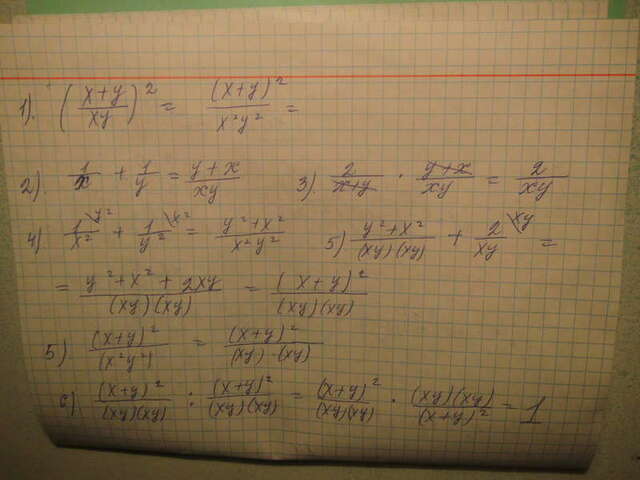 1). ((x+y)/(xy))² = (x+y)²/(x²y²) =
2). 1/x + 1/y = (y+x)/(xy) 3). 2/(x+y) · (y+x)/(xy) = 2/(xy)
4) 1/x² \y² + 1/y² \x² = (y²+x²)/(x²y²) 5) (y²+x²)/((xy)(xy)) + 2/(xy) \xy =
= (y²+x²+2xy)/((xy)(xy)) = (x+y)²/((xy)(xy))
5) (x+y)²/(x²y²) = (x+y)²/((xy)·(xy))
6) (x+y)²/((xy)(xy)) : (x+y)²/((xy)(xy)) = (x+y)²/((xy)(xy)) · (xy)(xy)/(x+y)² = 1